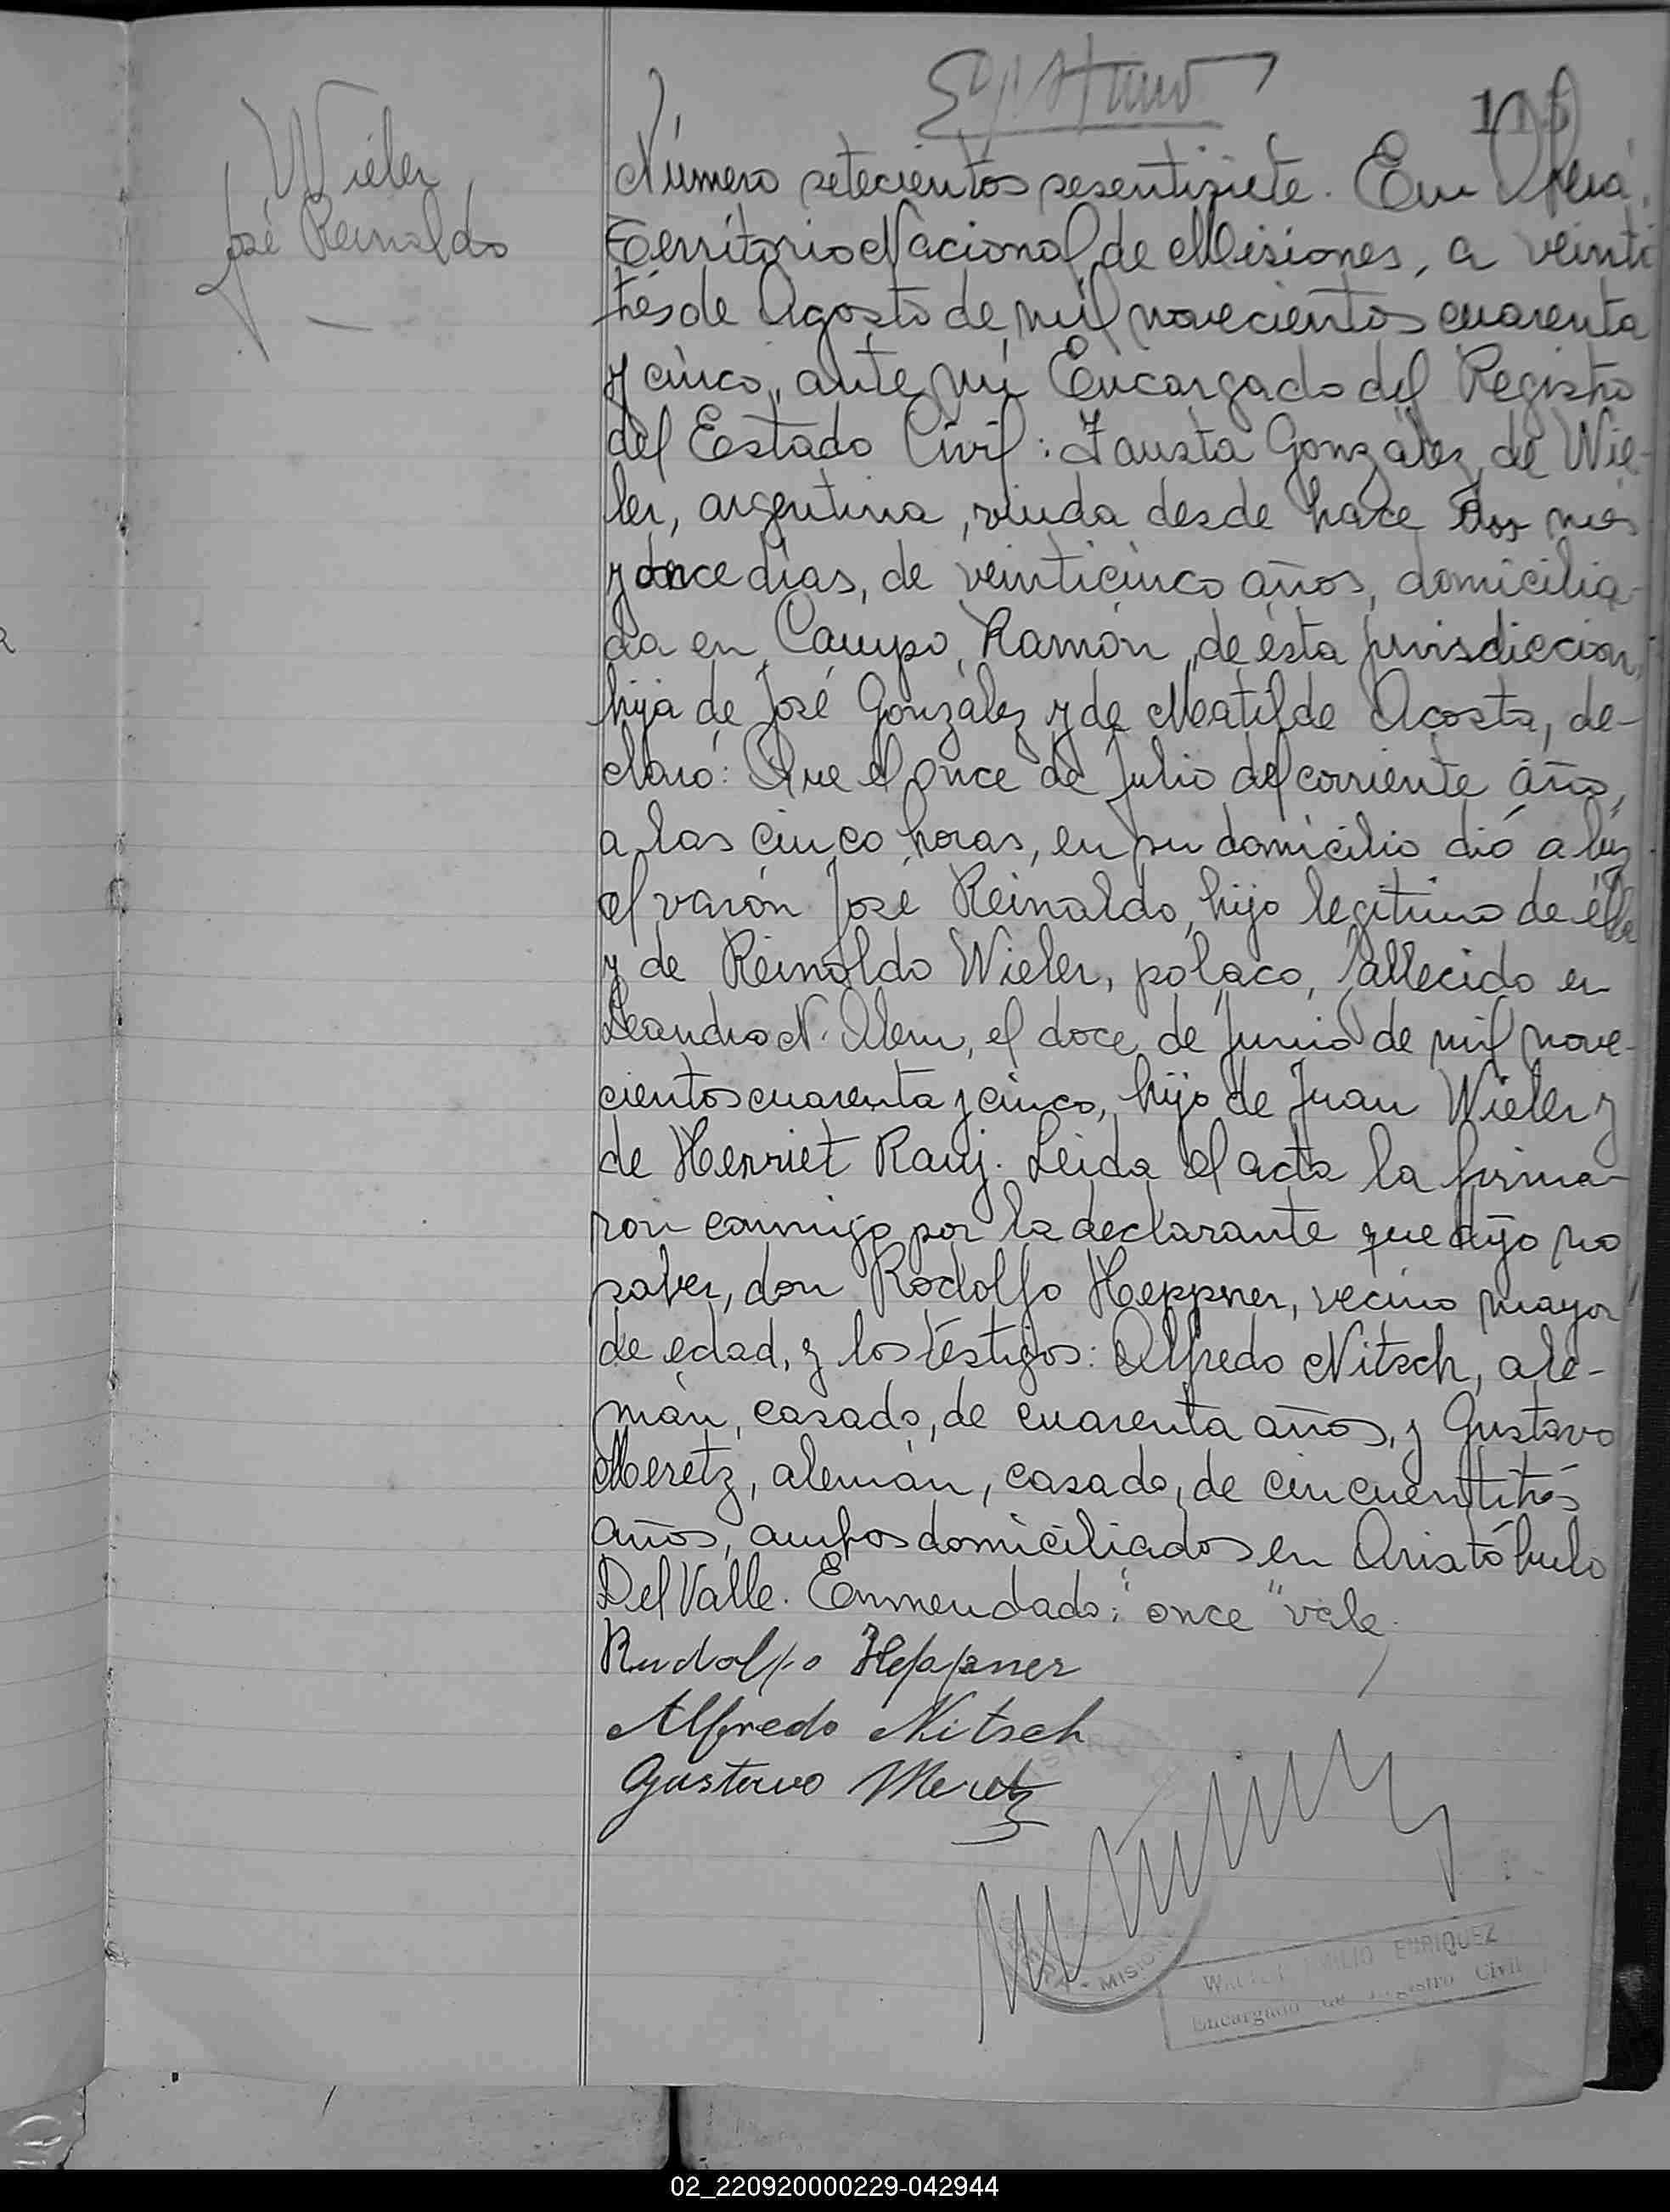 115
Wieler
José Reinaldo
Número setecientos sesentisiete. En Oberá,
Territorio Nacional de Misiones, a veinti
trés de Agosto de mil novecientos cuarenta
y cinco, ante mí Encargado del Registro
del Estado Civil: Fausta González de Wie-
ler, argentina, viuda desde hace dos mes
y once días, de veinticinco años, domicilia-
da en Campo Ramón, de ésta jurisdiccion,
hija de José González y de Matilde Acosta, de-
claró: Que el once de Julio del corriente año,
a las cinco horas, en su domicilio dió a lúz
el varón José Reinaldo, hijo legítimo de élla
y de Reinoldo Wieler, polaco, fallecido en
Leandro N. Alem, el doce de Junio de mil nove-
cientos cuarenta y cinco, hijo de Juan Wieler y
de Herriet Rauj. Leida el acta la firma-
ron conmigo por la declarante que dijo no
saber, don Rodolfo Heppner, vecino mayor
de edad, y los téstigos: Alfredo Nitsch, ale-
mán, casado, de cuarenta años, y Gustavo
Meretz, alemán, casado, de cincuentitrés
años, ambos domiciliados en Aristóbulo
Del Valle. Enmendado: "once" vale.
Rudolfo Heppner
Alfredo Nitsch
Gustavo Meretz
MISIO
EMILIO ENRIQUEZ
Encargado de Registro Civil
02_220920000229-042944